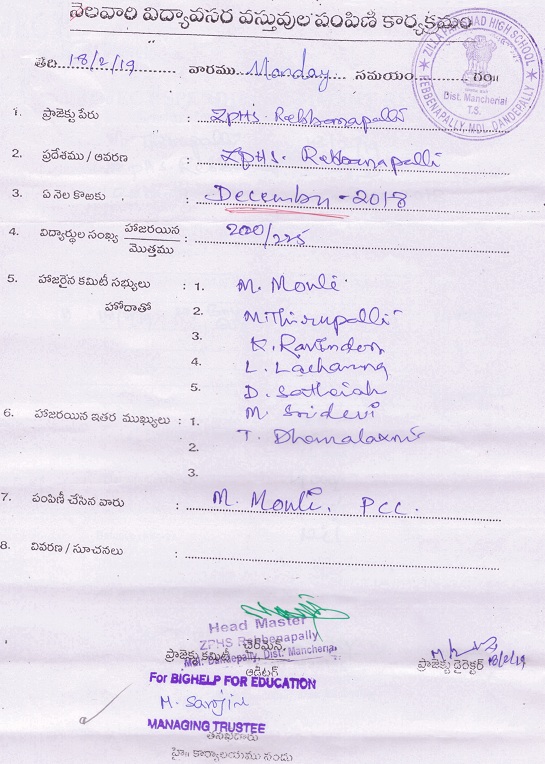 నెలవారి విద్యావసర వస్తువుల పంపిణి కార్యక్రమం
తేది.. 18/2/19 వారము.. Monday.... సమయం గం॥
ZILLA PARISHAD HIGH SCHOOL
REBBENAPALLY, MDL. DANDEPALLY
Dist. Mancherial
T.S.
1. ప్రాజెక్టు పేరు : ZPHS. Rebbenapalli
2. ప్రదేశము / ఆవరణ : ZPHS. Rebbenapalli
3. ఏ నెల కొఱకు : December - 2018
4. విద్యార్థుల సంఖ్య హాజరయిన / మొత్తము : 200/225
5. హాజరైన కమిటీ సభ్యులు : 1. M. Mouli
హోదాతో 2. M Thirupalli
3. K. Ravinder
4. L. Lachanna
5. D. Sathaiah
6. హాజరయిన ఇతర ముఖ్యులు : 1. M. Sridevi
2. T. Dhamalaxmi
3.
7. పంపిణీ చేసిన వారు : M. Mouli, PCC.
8. వివరణ / సూచనలు :
Head Master
ZPHS Rebbenapally
Mdl. Dandepally, Dist. Mancherial
ప్రాజెక్టు కమిటీ చైర్మన్
ఆడిటర్
ప్రాజెక్టు డైరెక్టర్ 18/2/19
For BIGHELP FOR EDUCATION
M. Sarojini
MANAGING TRUSTEE
కార్యాలయము నందు